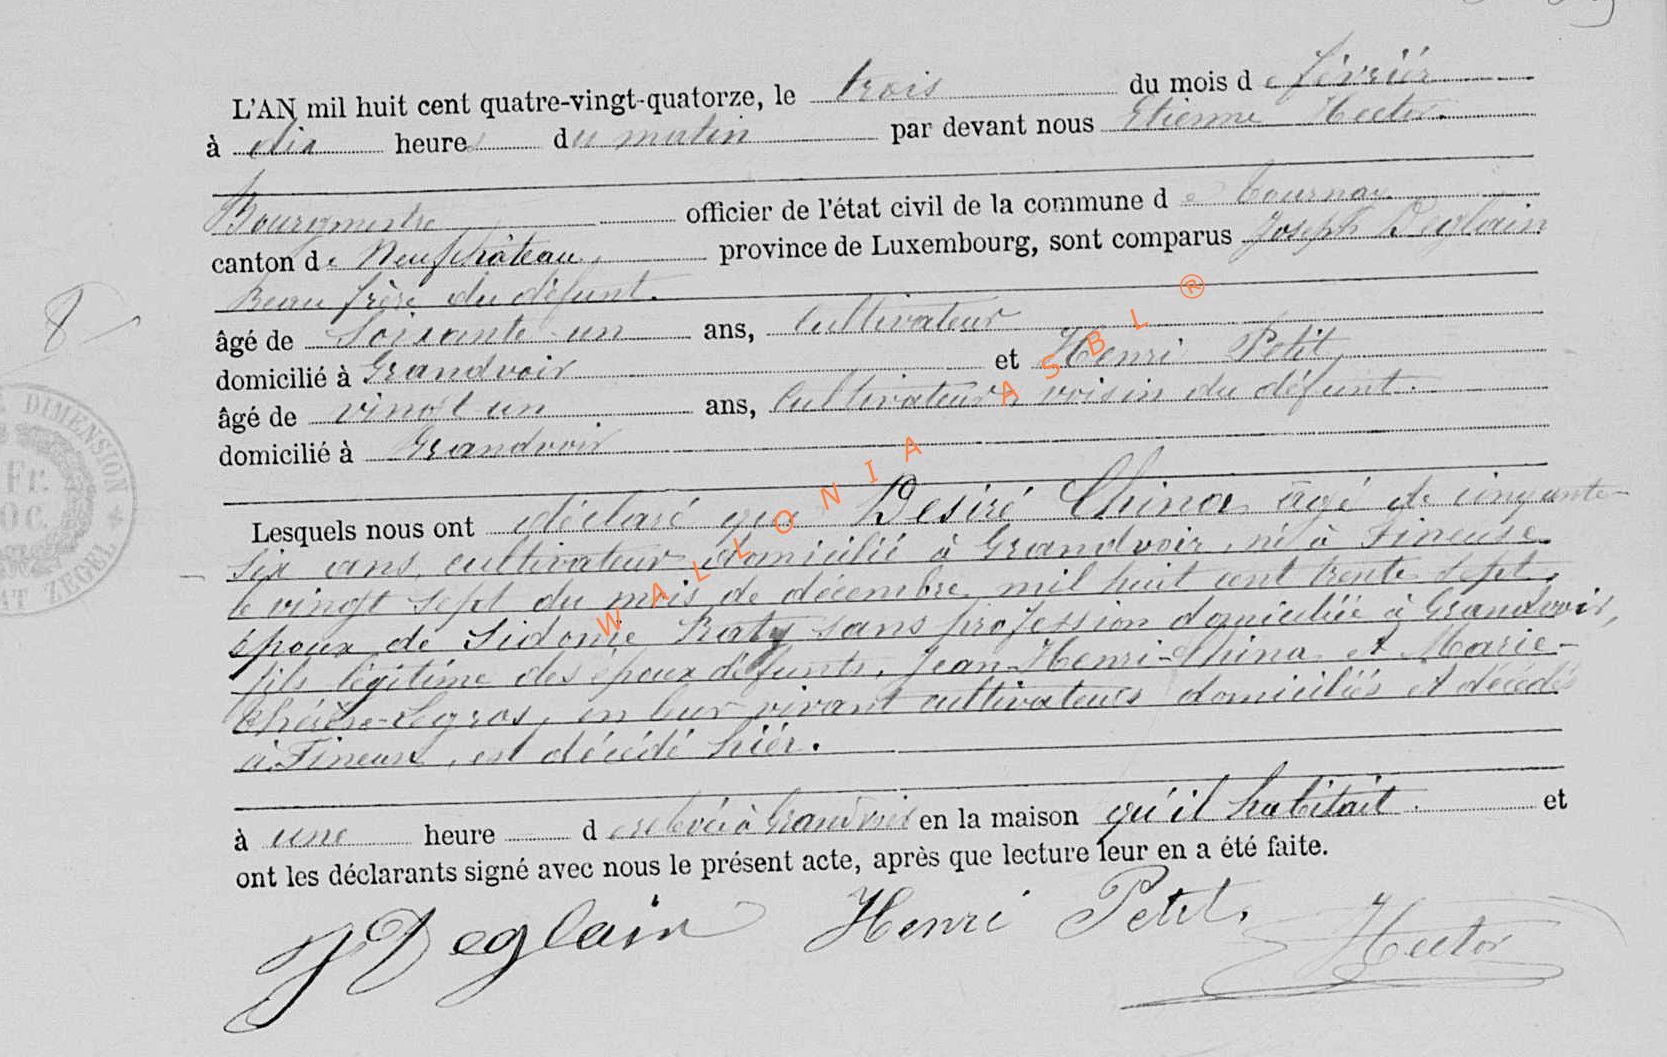 L'AN mil huit cent quatre-vingt-quatorze, le trois du mois de février
à dix heures du matin par devant nous Etienne Hector.
Bourgmestre officier de l'état civil de la commune de Tournay.
canton de Neufchâteau, province de Luxembourg, sont comparus Joseph Deglain
Beau frère du défunt.
âgé de soixante un ans, Cultivateur
domicilié à Grandvoir et Henri Petit,
âgé de vingt un ans, Cultivateur, voisin du défunt.
domicilié à Grandvoir
8
DIMENSION
Fr.
ZEGEL
Lesquels nous ont déclaré que Desiré China, âgé de cinquante-
six ans, cultivateur domicilié à Grandvoir, né à Fineuse
le vingt sept du mois de décembre mil huit cent trente sept,
époux de Sidonie Raty sans profession domiciliée à Grandvoir,
fils légitime des époux défunts, Jean-Henri-China et Marie-
Thérèse-Legros, en leur vivant cultivateurs domiciliés et décédés
à Fineuse, est décédé hier.
à une heure d à Grandvoir en la maison qu'il habitait et
ont les déclarants signé avec nous le présent acte, après que lecture leur en a été faite.
J Deglain Henri Petit, Hector
WALLONIA ASBL ®